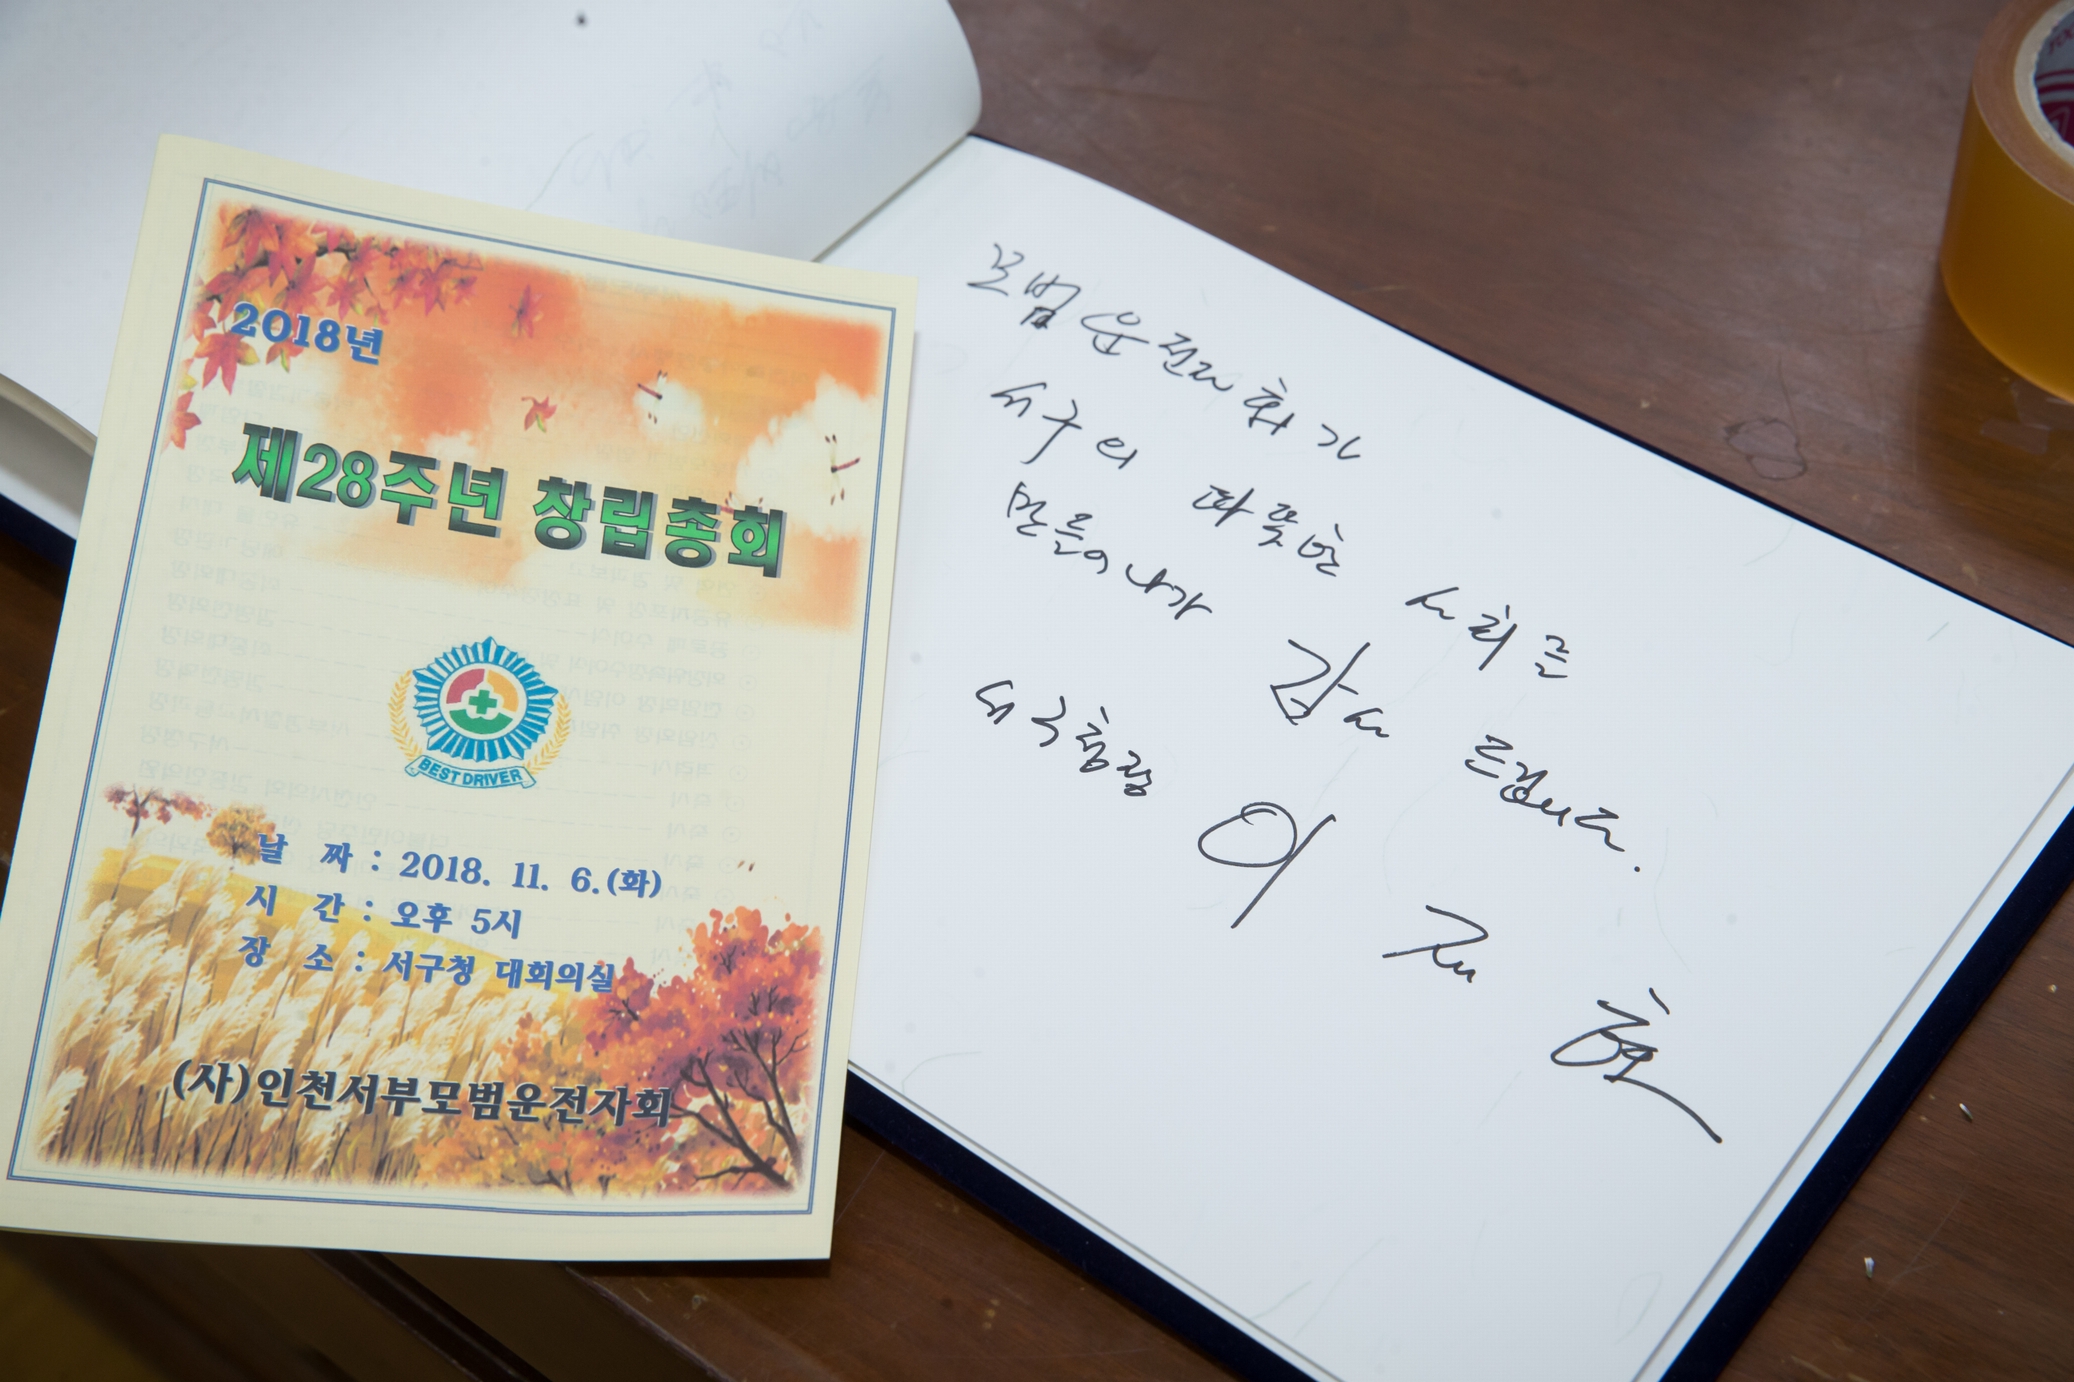 2018년
제28주년 창립총회
BEST DRIVER
날 짜 : 2018. 11. 6.(화)
시 간 : 오후 5시
장 소 : 서구청 대회의실
(사)인천서부모범운전자회
모범운전자회가
서구의 따뜻한 사회를
만들어나가 감사 드립니다.
서구청장 이 재 현